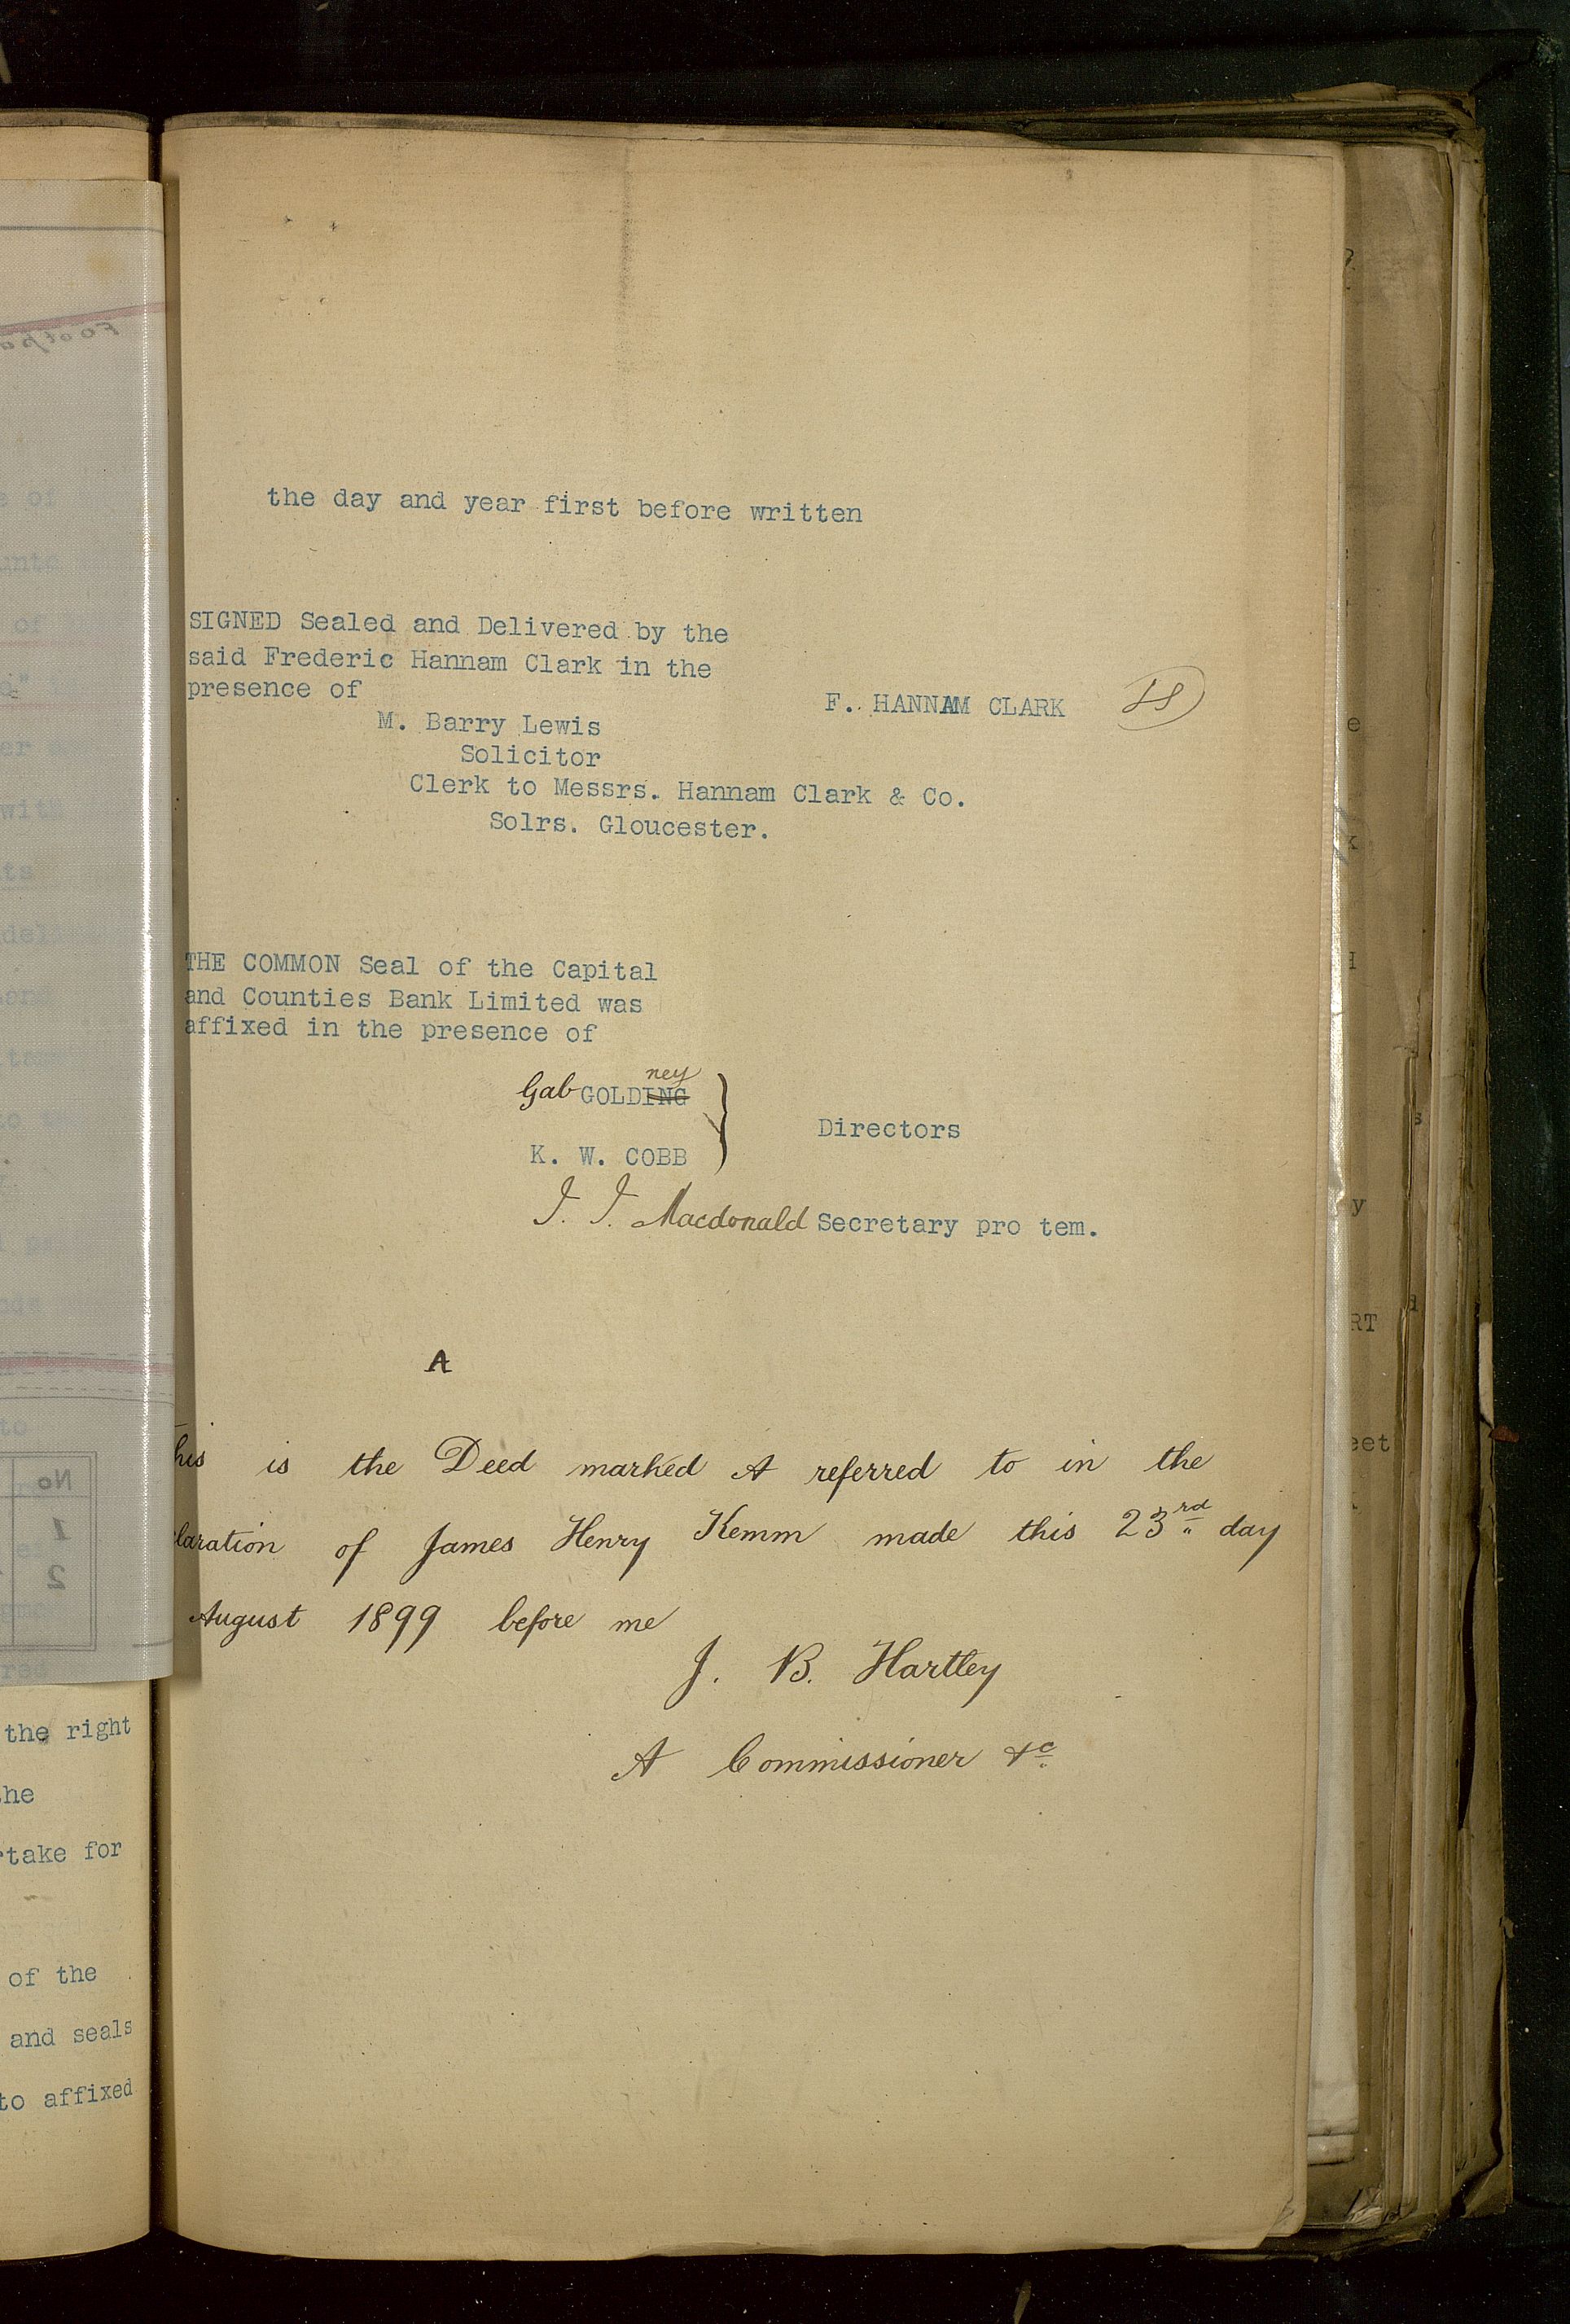 the day and year first before written
SIGNED Sealed and Delivered by the
said Frederic Hannam Clark in the
presence of
F. HANNAM CLARK
M. Barry Lewis
Solicitor
Clerk to Messrs. Hannam Clark & Co.
Solrs. Gloucester.
THE COMMON Seal of the Capital
and Counties Bank Limited was
affixed in the presence of
ney
Gab GOLDING
Directors
K. W. COBB
J. J. Macdonald Secretary pro tem.
A
his is the Deed marked A referred to in the
laration of James Henry Kemm made this 23rd day
August 1899 before me
J. B. Hartley
A Commissioner &c.
the right
he
take for
of the
and seals
to affixed